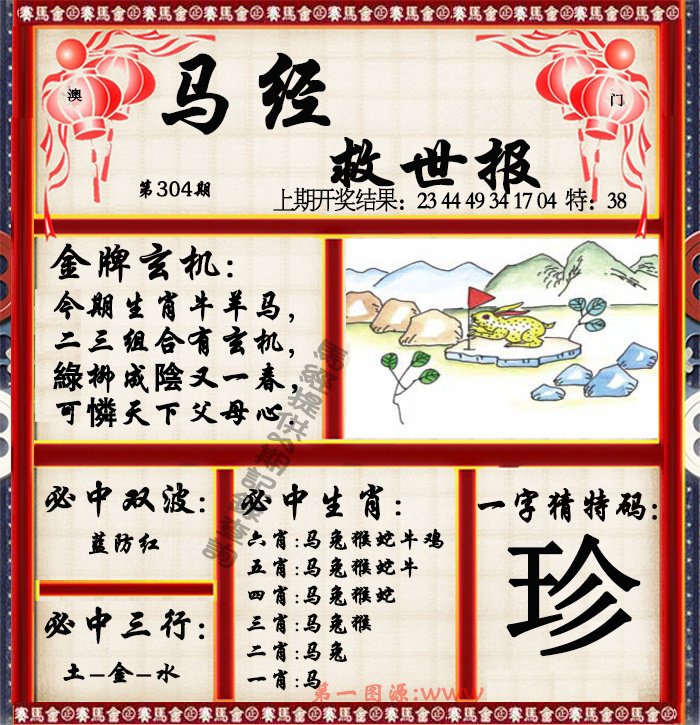 賽馬會 賽馬會 賽馬會 賽馬會 賽馬會 賽馬會 賽馬會 賽馬會
澳
门
马经
救世报
第304期
上期开奖结果：23 44 49 34 17 04 特：38
金牌玄机：
今期生肖牛羊马，
二三组合有玄机，
綠柳成陰又一春，
可憐天下父母心。
必中双波：
蓝防红
必中三行：
土-金-水
必中生肖：
六肖:马兔猴蛇牛鸡
五肖:马兔猴蛇牛
四肖:马兔猴蛇
三肖:马兔猴
二肖:马兔
一肖:马
一字猜特码：
珍
第一图源:www